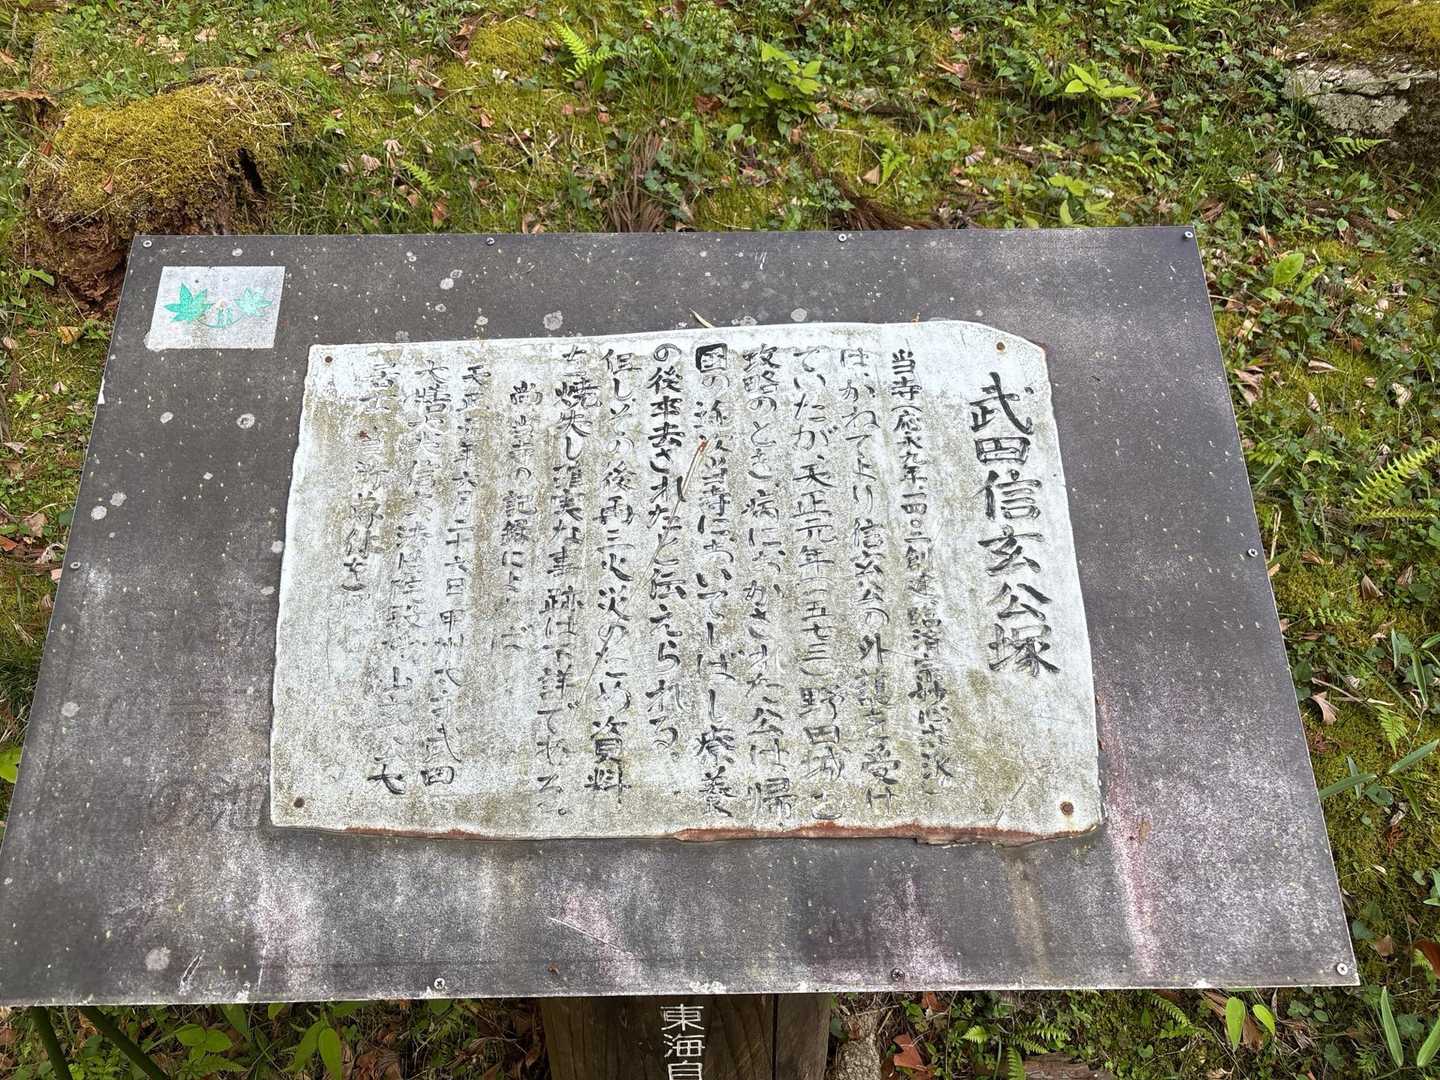 武田信玄公塚
当寺(応永九年一四〇二創建 臨済宗妙心寺派)
は、かねてより信玄公の外護を受け
ていたが、天正元年(一五七三)野田城を
攻略のとき、病におかされた公は帰
国の途次当寺においてしばし療養
の後卒去されたと伝えられる。
但しその後再三火災のため資料
を焼失し確実な事跡は不詳である。
尚当寺の記録によれば
年六月二十六日甲州
武田
東海自